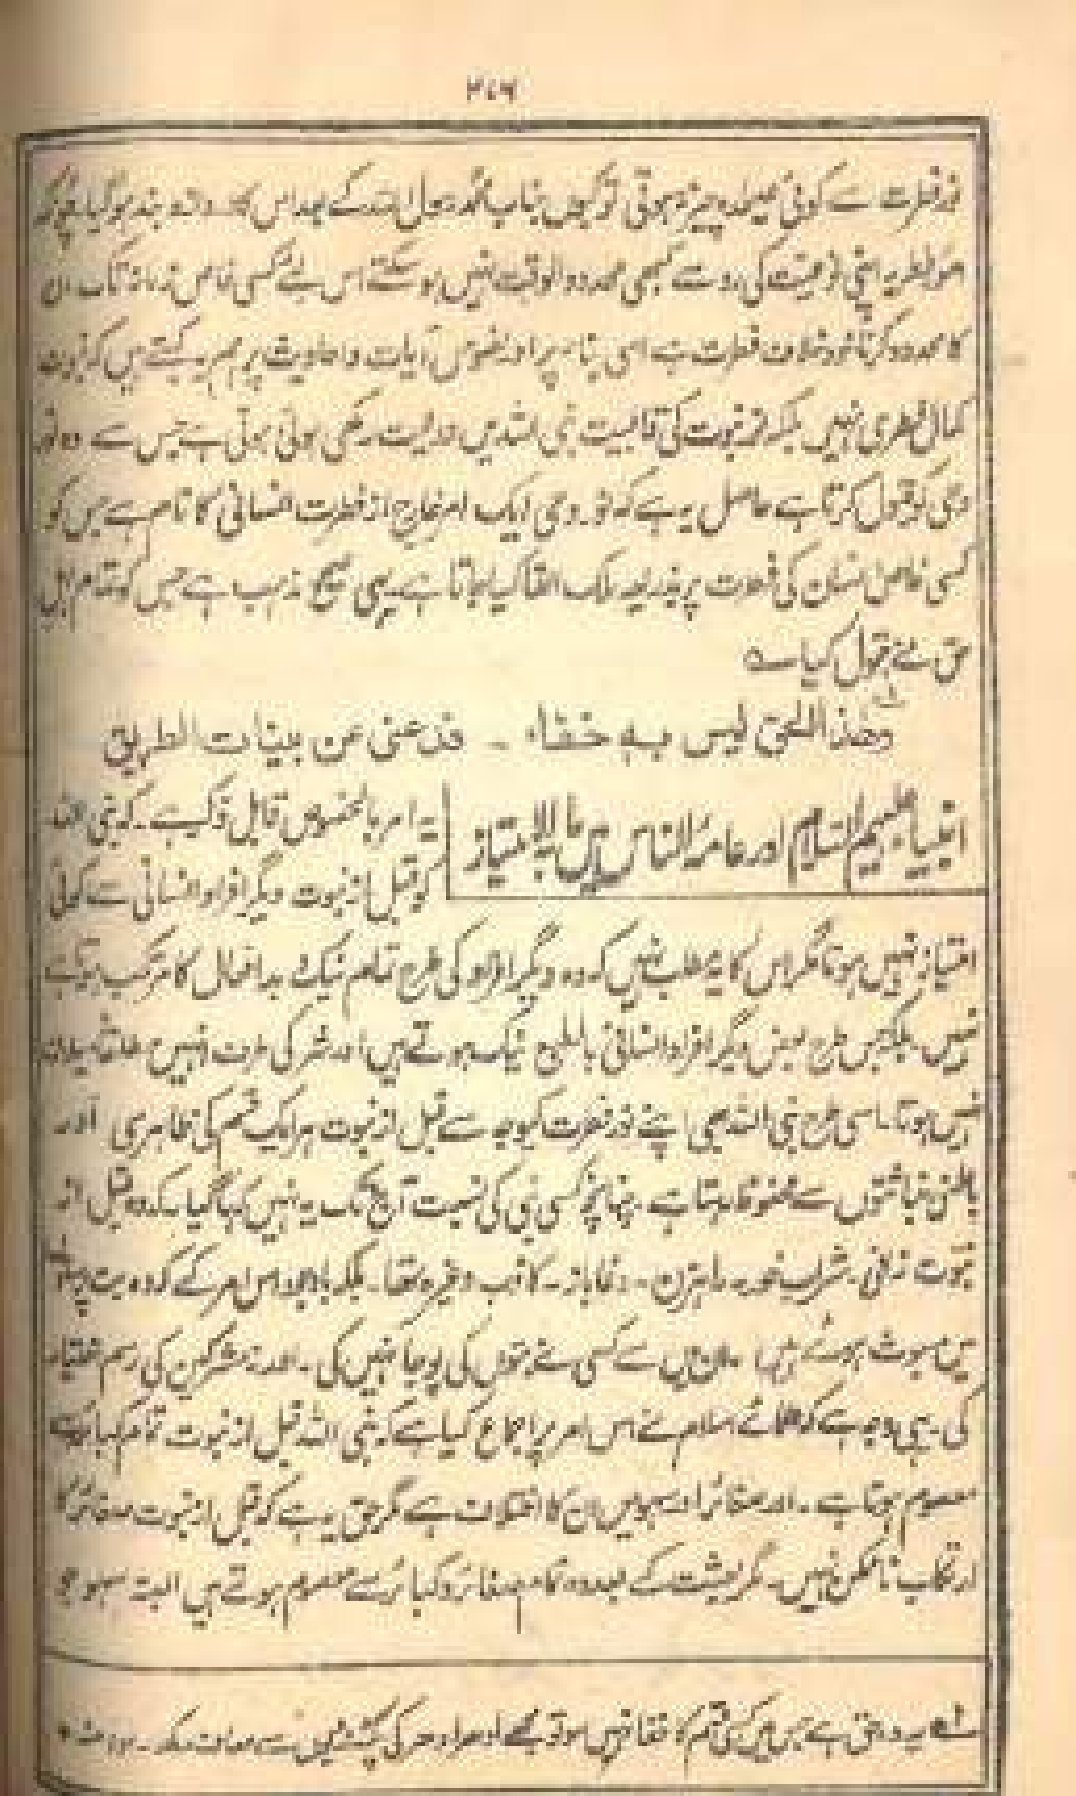 ۲۰۶
نور فطرت سے کوئی علیحدہ چیز نہ ہوتی تو کیوں جناب محمد رسول اللہ کے بعد اس کا دروازہ بند ہوگیا کیونکہ
امور فطریہ اپنی نوعیت کی رو سے کبھی محدود الوقت نہیں ہو سکتے اس لئے کسی خاص زمانہ تک ان
کا محدود کرنا خود خلاف فطرت ہے اسی بناء پر اور نصوص آیات و احادیث پر ہم یہ کہتے ہیں کہ نبوت
کمال فطری نہیں بلکہ نور نبوت کی قابلیت نبی اللہ میں ودیعت رکھی ہوئی ہوتی ہے جس سے وہ نور
وحی کو قبول کرتا ہے حاصل یہ ہے کہ نور وحی ایک امر خارج از فطرت انسانی کا نام ہے جس کو
کسی خاص انسان کی فطرت پر بذریعہ ملک القا کیا جاتا ہے یہی صحیح مذہب ہے جس کو تمام اہل
حق نے قبول کیا ہے
وهذا الحق ليس به خفاء ۔ فدعنی عن بینات الطریق
انبیاء علیہم السلام اور عامۃ الناس میں ما بہ الامتیاز
یہ امر بالخصوص قابل ذکر ہے ۔ کہ نبی اللہ
کو قبل از نبوت دیگر افراد انسانی سے کوئی
امتیاز نہیں ہوتا مگر اس کا یہ مطلب نہیں کہ وہ دیگر افراد کی طرح تمام نیک و بد افعال کا مرتکب ہوتا ہے
نہیں بلکہ جس طرح بعض دیگر افراد انسانی بالطبع نیک ہوتے ہیں اور شر کی طرف انہیں مطلقاً میلان
نہیں ہوتا ۔ اسی طرح نبی اللہ بھی اپنے نور فطرت کیوجہ سے قبل از نبوت ہر ایک قسم کی ظاہری اور
باطنی خباثتوں سے محفوظ رہتا ہے ۔ چنانچہ کسی نبی کی نسبت آج تک یہ نہیں کہا گیا کہ وہ قبل از
نبوت زانی ۔ شراب خور ۔ راہزن ۔ دغاباز ۔ کاذب وغیرہ تھا ۔ بلکہ باوجود اس امر کے کہ وہ بت پرستوں
میں مبعوث ہوئے ہیں ان میں سے کسی نے بتوں کی پوجا نہیں کی ۔ اور نہ مشرکین کی رسم اختیار
کی ۔ یہی وجہ ہے کہ علمائے اسلام نے اس امر پر اجماع کیا ہے کہ نبی اللہ قبل از نبوت تمام کبائر سے
معصوم ہوتا ہے ۔ اور صغائر اور سہو میں ان کا اختلاف ہے مگر حق یہ ہے کہ قبل از نبوت صغائر کا
ارتکاب ناممکن نہیں ۔ مگر بعثت کے بعد وہ تمام صغائر و کبائر سے معصوم ہوتے ہیں البتہ سہو جو
یہ وہ حق ہے جس میں کسی قسم کا خفا نہیں سو تو مجھے ادھر ادھر کی سے معاف رکھ ۔